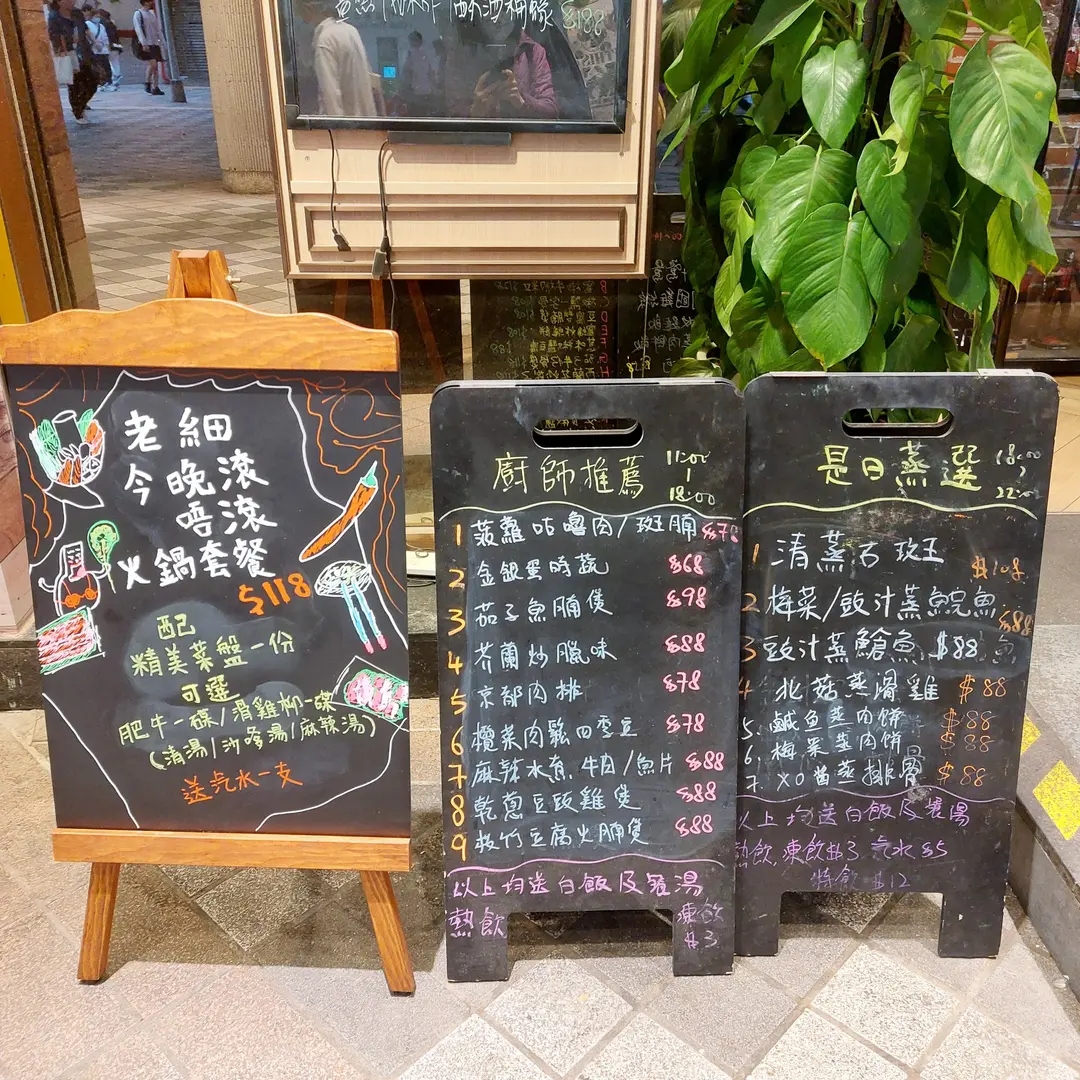 $188
老細
今晚滾
唔滾
火鍋套餐
$118
配
精美菜盤一份
可選
肥牛一碟/滑雞柳一碟
(清湯/沙嗲湯/麻辣湯)
送汽水一支
廚師推薦 11:00 | 18:00
1 菠蘿咕嚕肉/斑腩 $78
2 金銀蛋時蔬 $68
3 茄子魚腩煲 $98
4 芥蘭炒臘味 $88
5 京都肉排 $78
6 欖菜肉鬆四季豆 $78
7 麻辣水煮牛肉/魚片 $88
8 乾蔥豆豉雞煲 $88
9 枝竹豆腐火腩煲 $88
以上均送白飯及餐湯
熱飲 凍飲
$3
是日蒸選 18:00 22:00
1 清蒸古斑王 $108
2 梅菜/豉汁蒸鯇魚 $88
3 豉汁蒸鱠魚 $88
4 北菇蒸滑雞 $88
5. 鹹魚蒸肉餅 $88
6. 梅菜蒸肉餅 $88
7. XO醬蒸排骨 $88
以上均送白飯及餐湯
熱飲,凍飲$3 汽水$5
特飲 $12